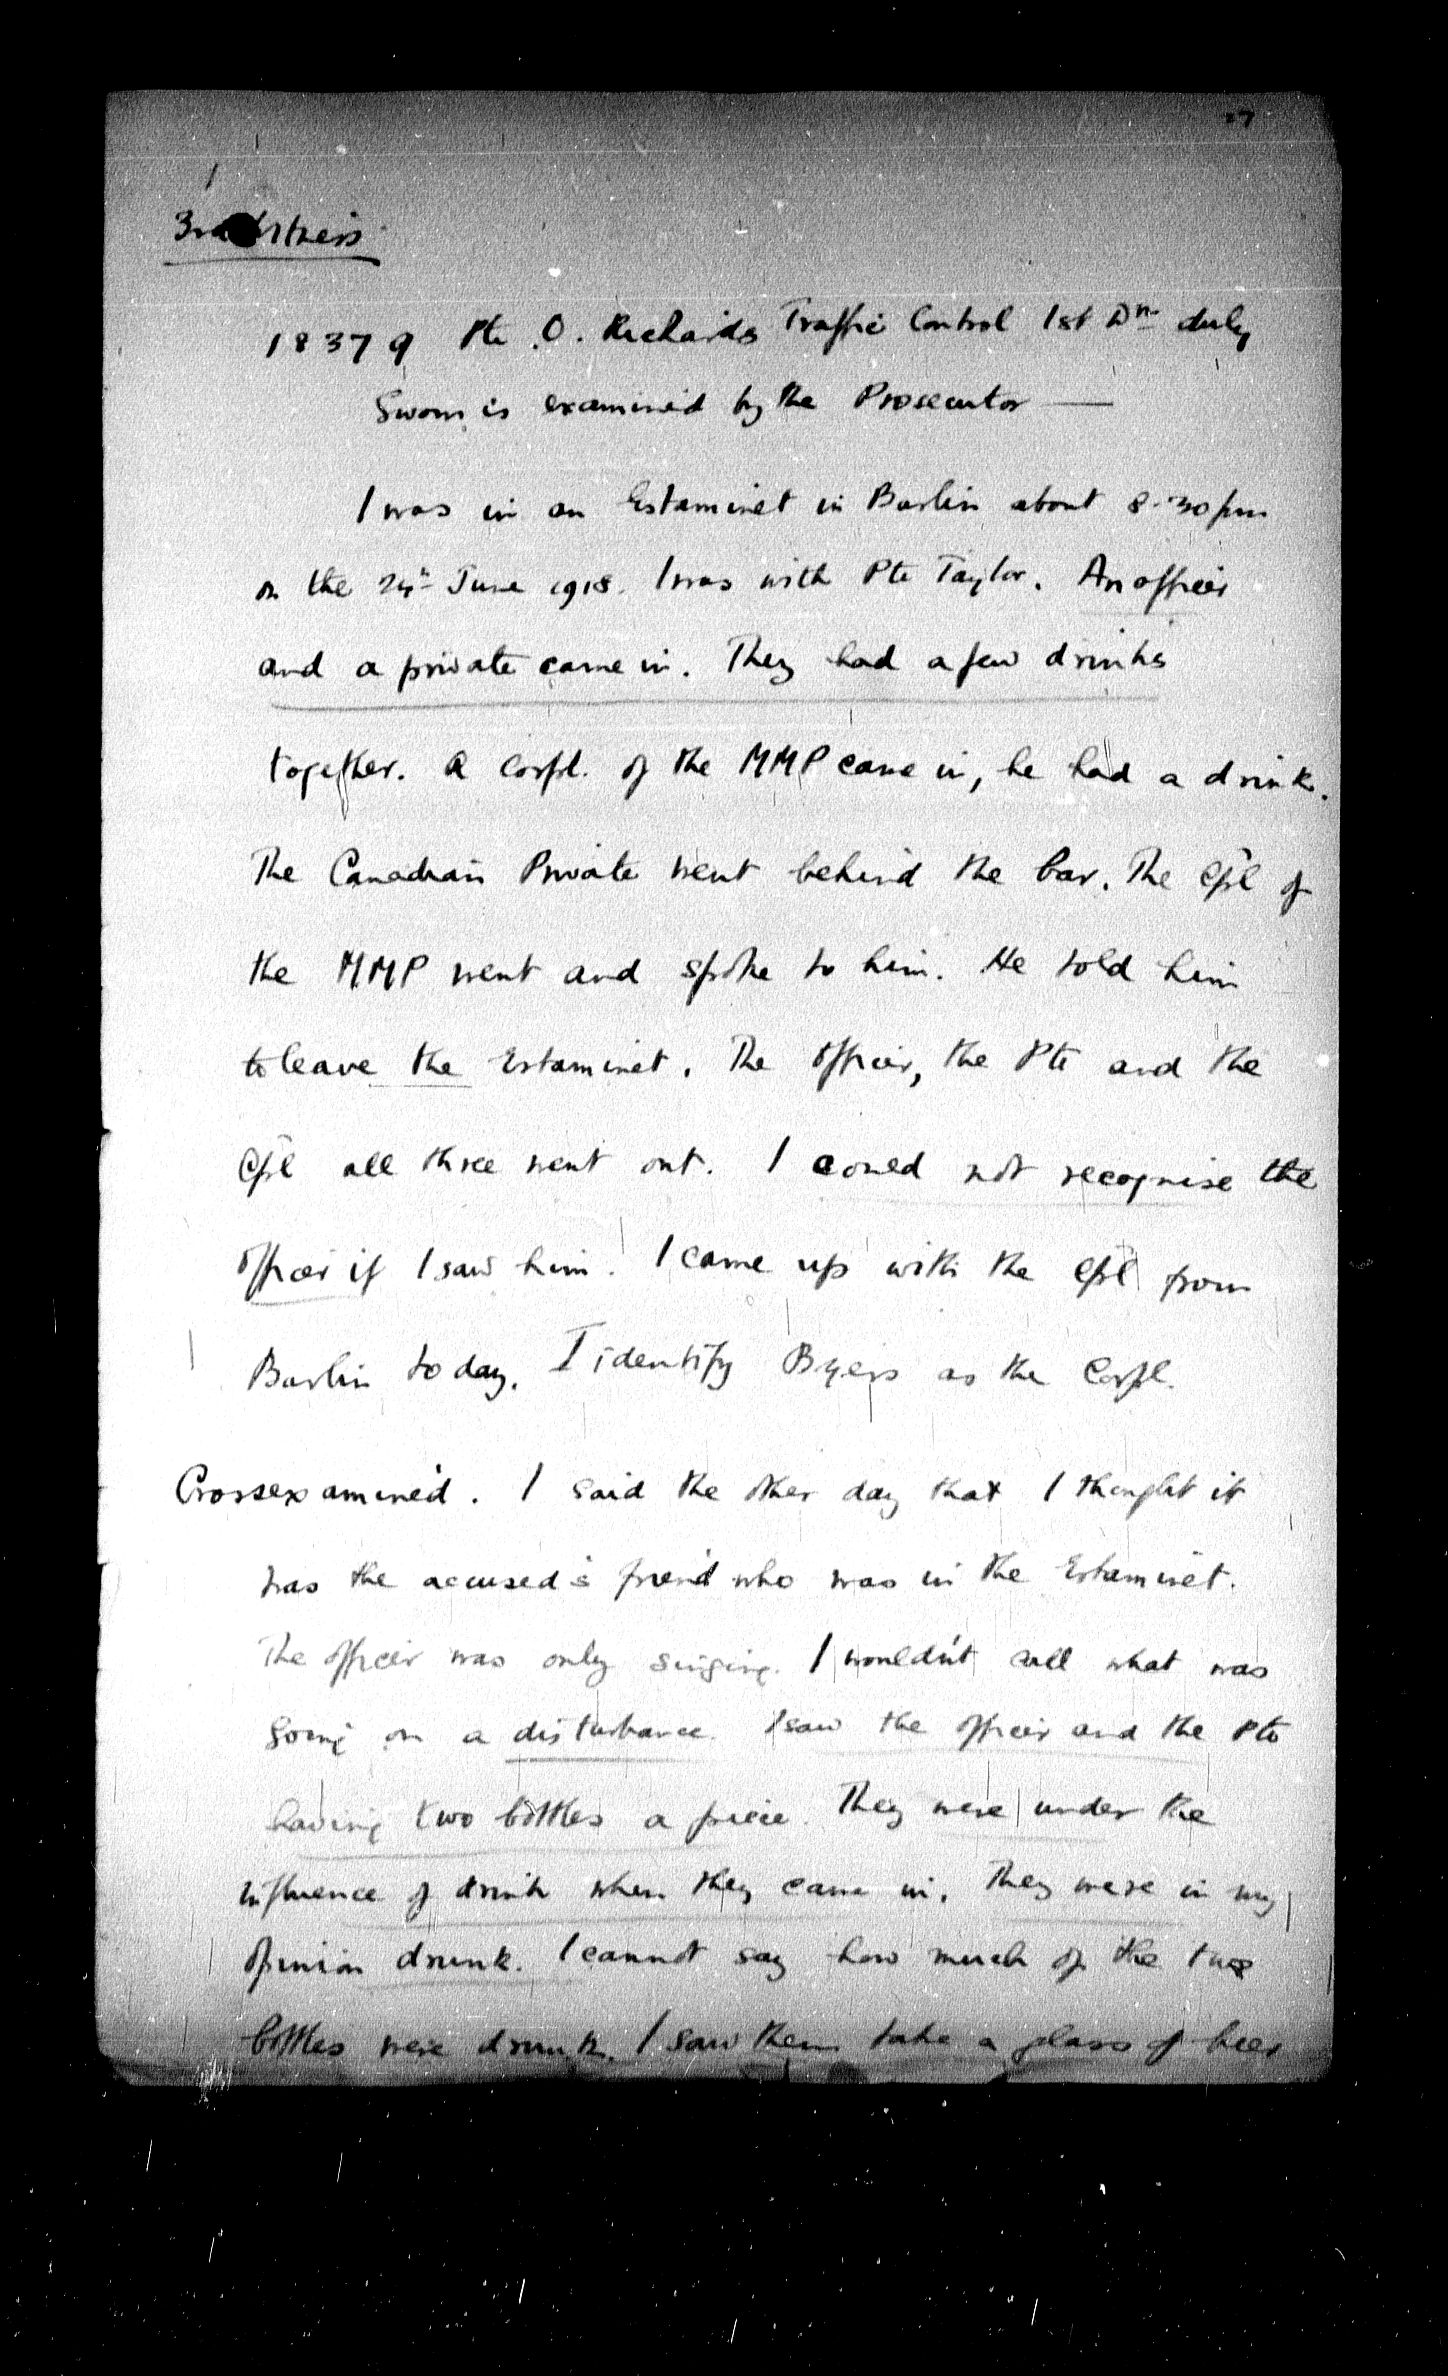 27
3rd Witness
18379 Pte O. Richards Traffic Control 1st Dn duly
Sworn is examined by the Prosecutor —
I was in an Estaminet in Barlin about 8.30 pm
on the 24th June 1918. I was with Pte Taylor. An officer
and a private came in. They had a few drinks
together. A Corpl. of the MMP came in, he had a drink.
The Canadian Private went behind the bar. The Cpl of
the MMP went and spoke to him. He told him
to leave the Estaminet. The Officer, the Pte and the
Cpl all three went out. I could not recognise the
Officer if I saw him. I came up with the Cpl from
Barlin today. I identify Byers as the Corpl.
Crossexamined. I said the other day that I thought it
was the accused's friend who was in the Estaminet.
The officer was only singing. I wouldn't call what was
going on a disturbance. I saw the officer and the Pte
having two bottles a piece. They were under the
influence of drink when they came in. They were in my
opinion drunk. I cannot say how much of the two
bottles were drunk. I saw them take a glass of beer